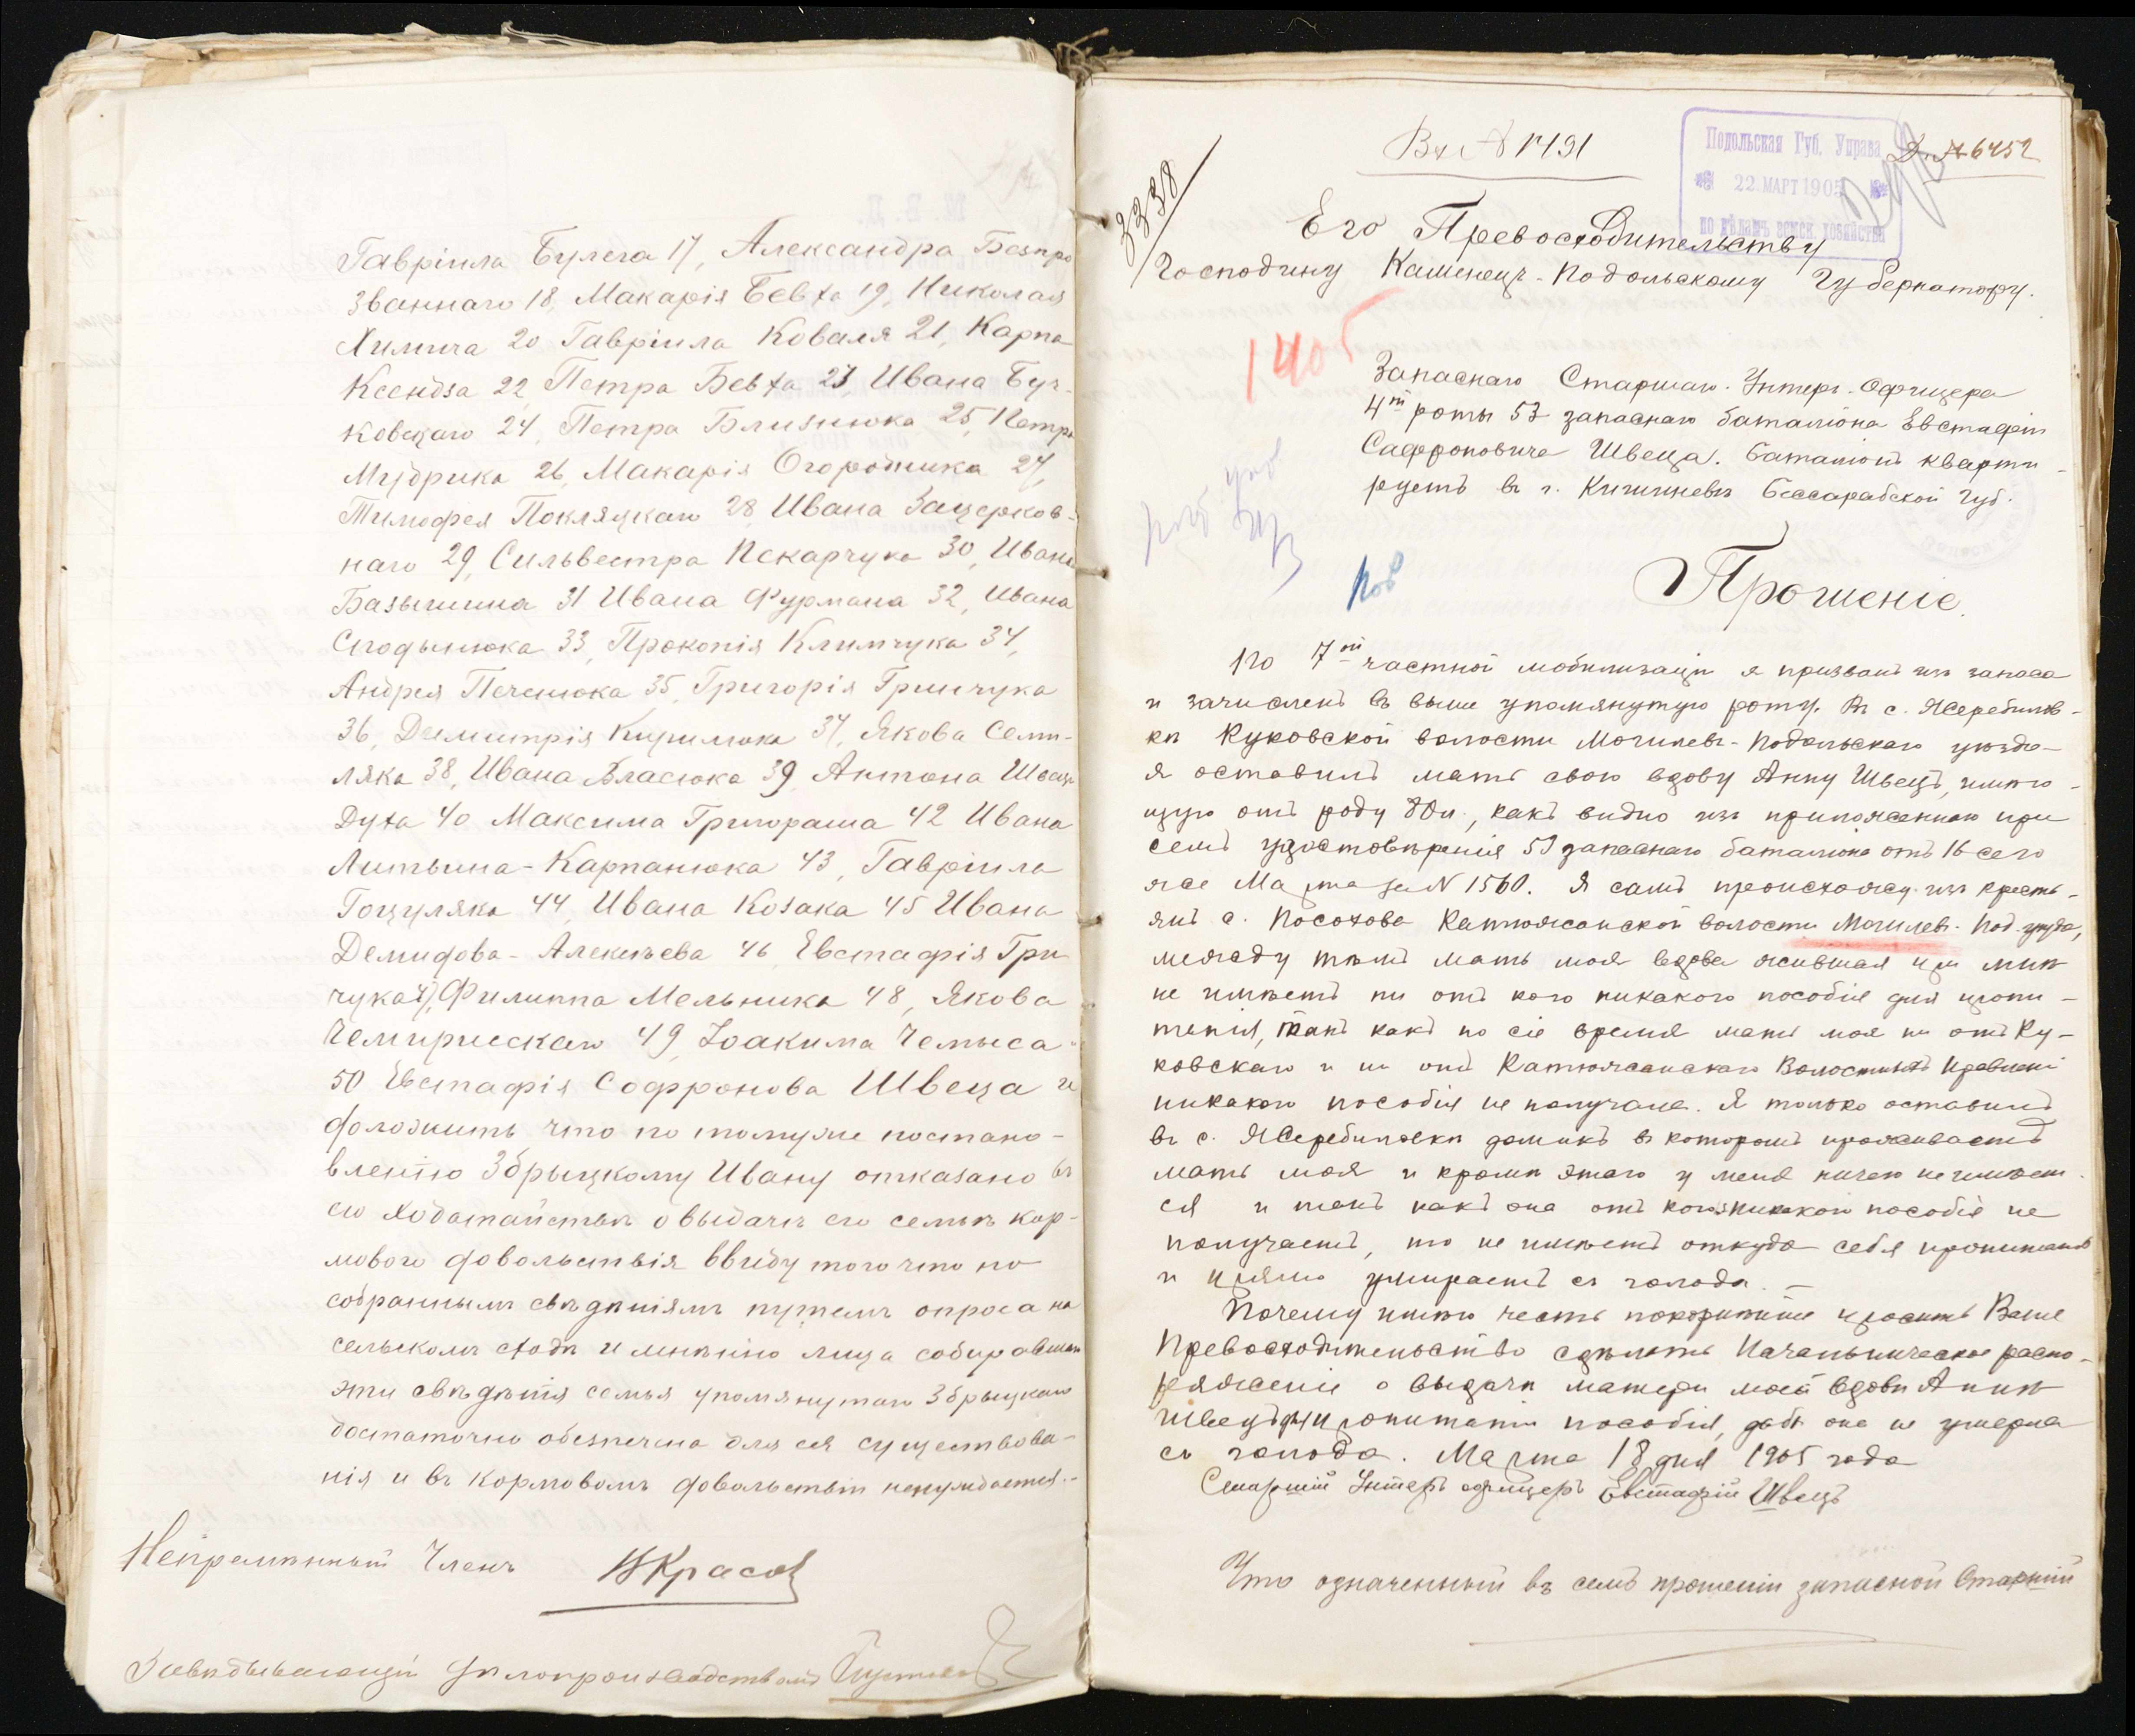 Гавріила Булега 17, Александра Безпро
званнаго 18, Макарія Бевха 19, Николая
Химича 20 Гавріила Коваля 21, Карпа
Ксендза 22 Петра Бевха 23, Ивана Буч-
ковскаго 24, Петра Близнюка 25, Петра
Мудрика 26, Макарія Огородника 27,
Тимофея Покляцкаго 28 Ивана Зацерков-
наго 29, Сильвестра Пекарчука 30, Ивана
31 Ивана Фурмана 32, Ивана
33, Прокопія Климчука 34,
Андрея Печенюка 35, Григорія Гринчука
36, Димитрія Кирилюка 37, Якова Семи-
ляка 38, Ивана Власюка 39 Антона Швеца
Духа 40 Максима Григораша 42 Ивана
Литвина-Карпанюка 43, Гавріила
Гоцуляка 44, Ивана Козака 45 Ивана
Демидова-Алексѣева 46 Евстафія Гри
чука 47, Филиппа Мельника 48, Якова
Чемирисскаго 49, Іоакима Чемыса
50 Евстафія Софронова Швеца и
доложить что по томуже постано-
вленію Збрыцкому Ивану отказано въ
его ходатайствѣ о выдачѣ его семьѣ кор-
мового довольствія ввиду того что по
собраннымъ свѣдѣніямъ путемъ опроса на
сельскомъ сходѣ и мнѣнію лица собиравшаго
эти свѣдѣнія семья упомянутаго Збрыцкаго
достаточно обезпечена для ея существова-
нія и въ кормовомъ довольствіи ненуждается.-
Непремѣнный Членъ Красов
Завѣдывающій дѣлопроизводствомъ
Вх № 1491
Подольская Губ. Управа
22 МАРТ 1905
по дѣламъ земск. хозяйства
№ 6452
3338
Его Превосходительству
Господину Каменецъ-Подольскому Губернатору.
140
Запаснаго Старшаго Унтеръ-Офицера
4й роты 57 запаснаго баталіона Евстафія
Сафроновича Швеца. Баталіонъ кварти-
руетъ въ г. Кишиневѣ Бессарабской Губ.
Прошеніе.
По 7й частной мобилизаціи я призванъ изъ запаса
и зачисленъ въ выше упомянутую роту. Въ с. Жеребилов-
ки Куковской волости Могилевъ-Подольскаго уѣзда
я оставилъ мать свою вдову Анну Швецъ, имѣю-
щую отъ роду 80 л., какъ видно изъ приложеннаго при
семъ удостовѣренія 57 запаснаго баталіона отъ 16 сего
же Марта за N 1560. Я самъ происхожу изъ кресть-
янъ с. Посохова Катюжанской волости Могилев. Под. уѣзда,
между тѣмъ мать моя вдова жившая при мнѣ
не имѣетъ ни отъ кого никакого пособія для пропи-
танія, такъ какъ по сіе время мать моя ни отъ Ку-
ковскаго и ни отъ Катюжанскаго Волостныхъ Правленій
никакого пособія не получала. Я только оставилъ
въ с. Жеребиловки домикъ въ которомъ проживаетъ
мать моя и кромѣ этого у меня ничего не имѣет-
ся и такъ какъ она отъ кого никакого пособія не
получаетъ, то не имѣетъ откуда себя пропитать
и прямо умираетъ съ голода. –
Почему имѣю честь покорнѣйше просить Ваше
Превосходительство сдѣлать Начальническое распо-
ряженіе о выдачи матери моей вдовѣ Аннѣ
Швецъ для пропитанія пособія, дабы она не умерла
съ голода. Марта 18 дня 1905 года
Старшій Унтеръ офицеръ Евстафій Швецъ
Что означенный въ семъ прошеніи запасной Старшій